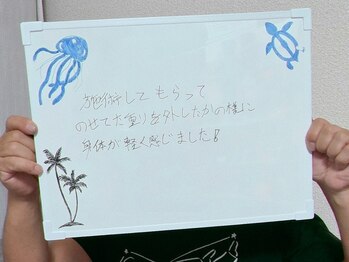 施術してもらって
のせてた重りを外したかの様に
身体が軽く感じました!